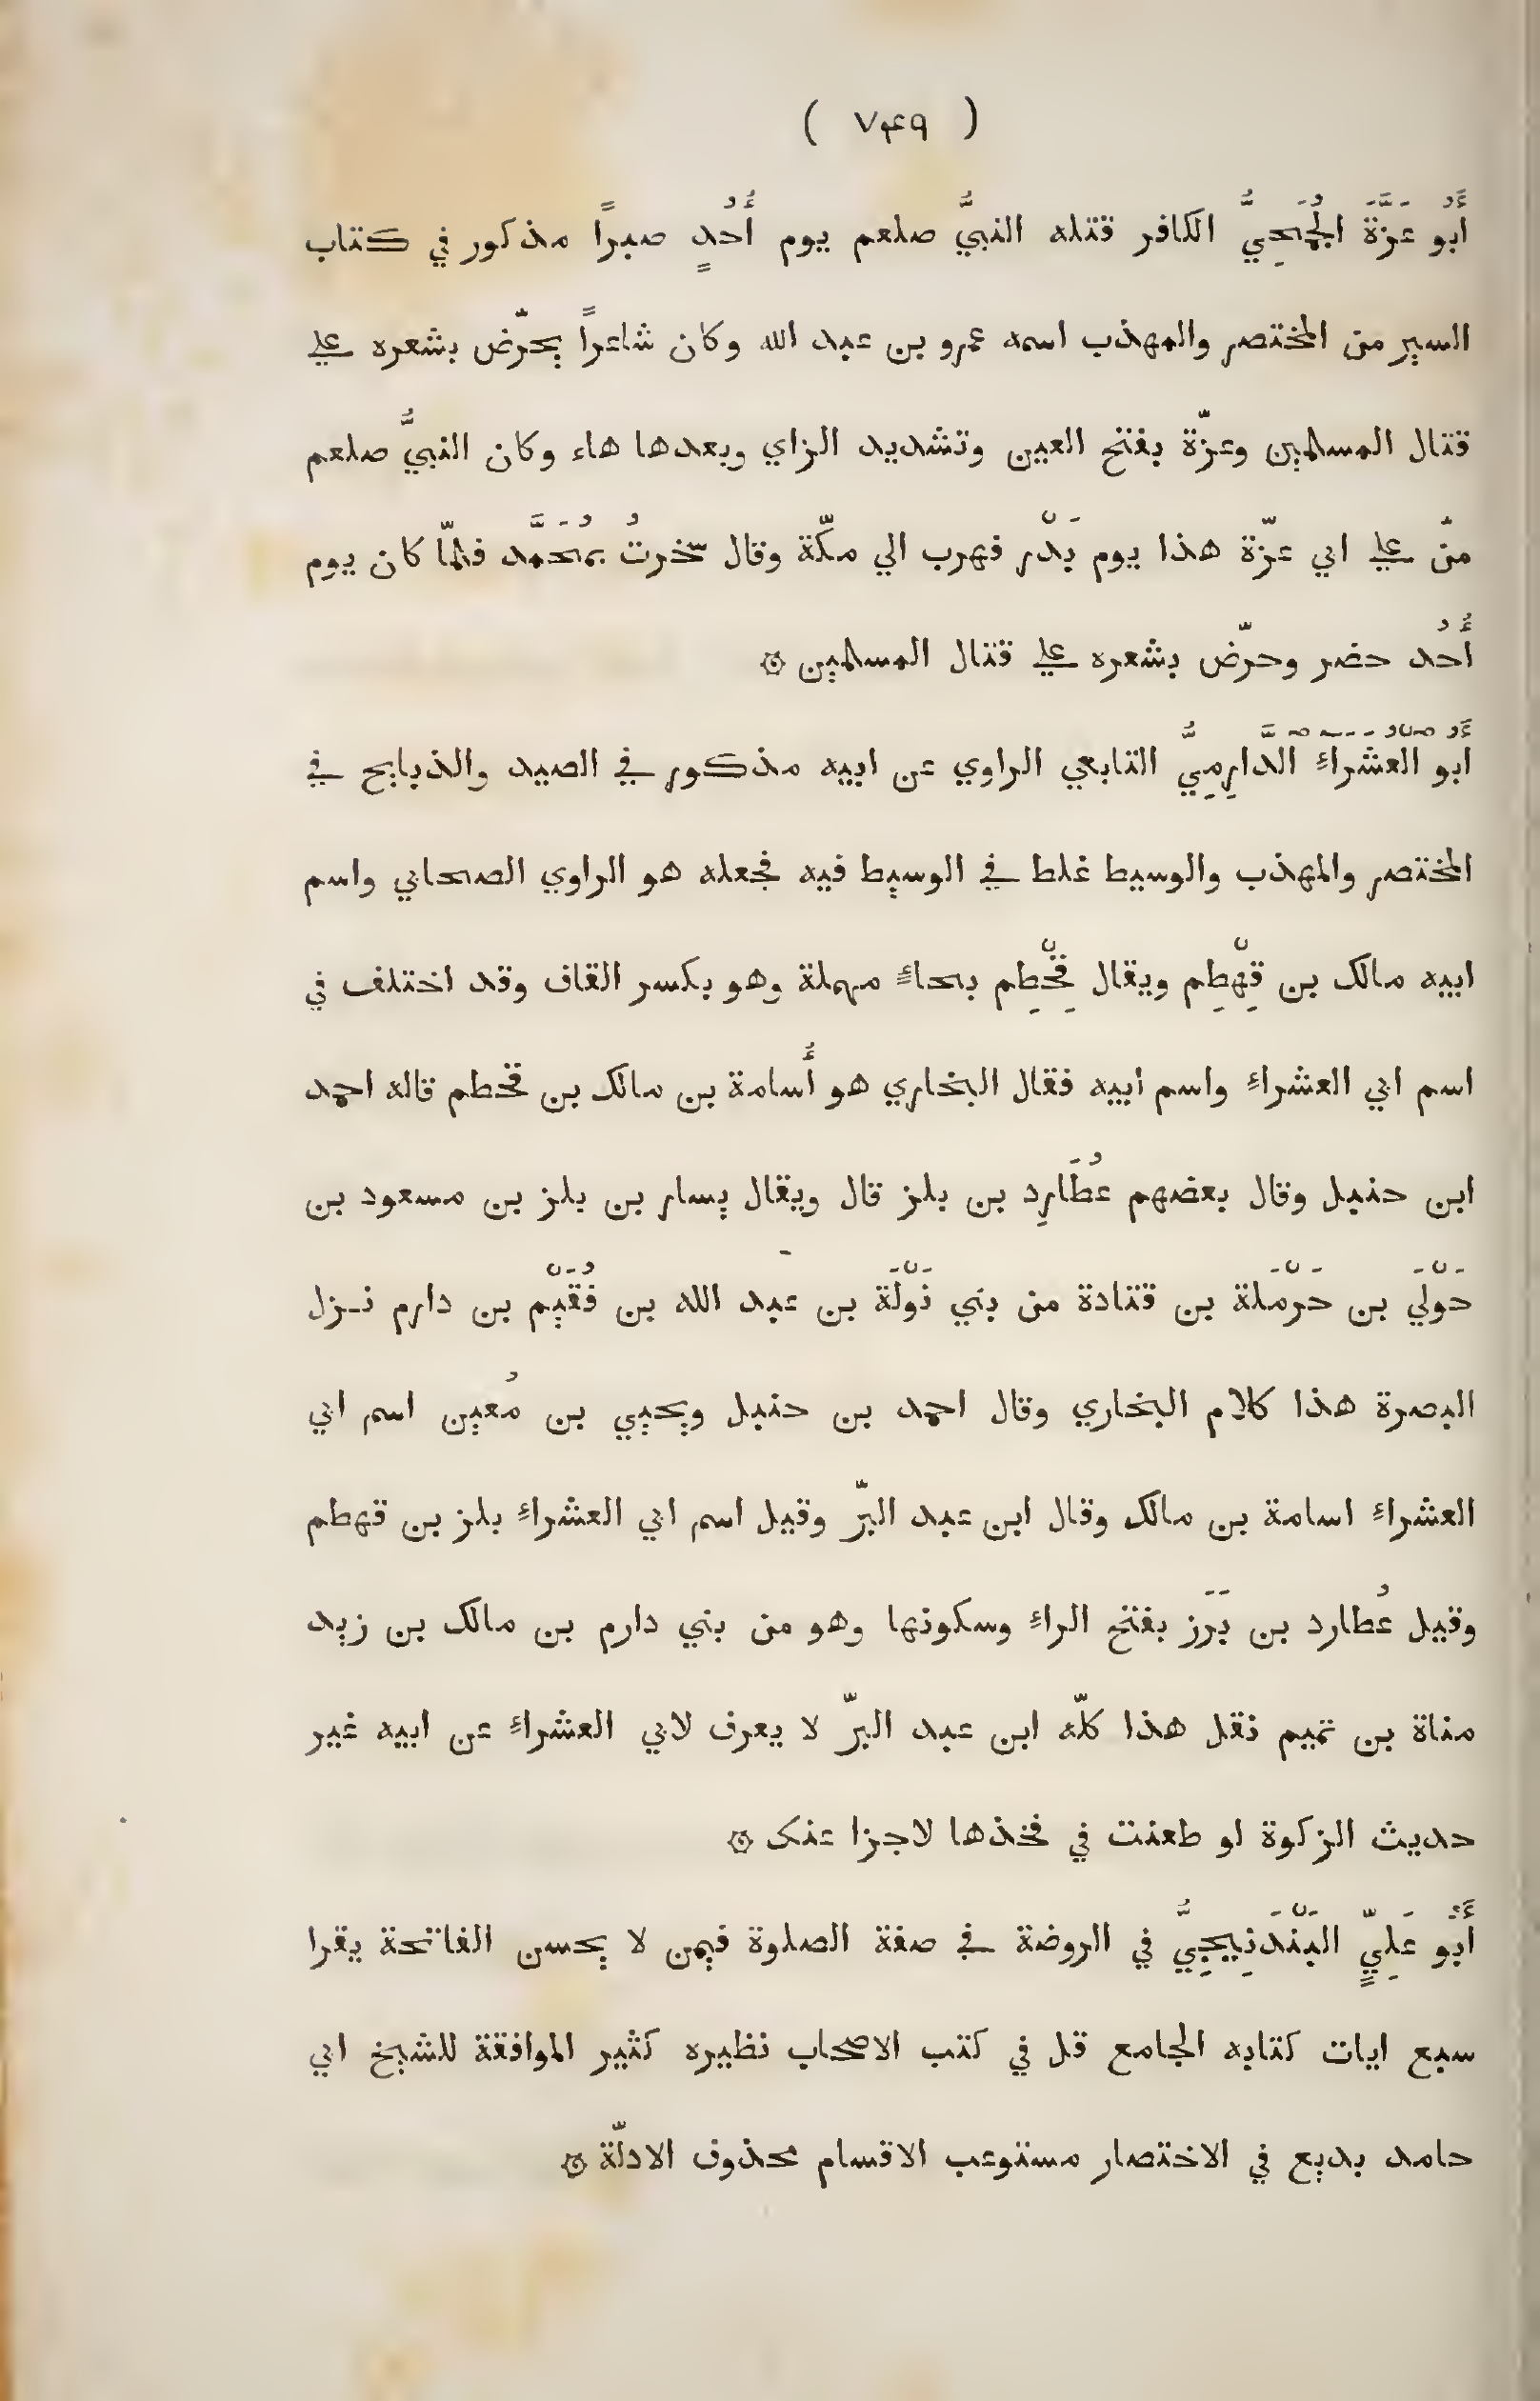 ( ٧٤٩ )
أَبُو عَزَّةَ الجُمَحِيُّ الكافر قتله النبيُّ صلعم يوم أُحُدٍ صبراً مذكور في كتاب
السير من المختصر والمهذب اسمه عمرو بن عبد الله وكان شاعراً يحرّض بشعره علي
قتال المسلمين وعزّة بفتح العين وتشديد الزاي وبعدها هاء وكان النبيُّ صلعم
منّ علي ابي عزّة هذا يوم بَدْر فهرب الي مكّة وقال سخرتُ بمُحَمَّد فلمّا كان يوم
أُحُد حضر وحرّض بشعره علي قتال المسلمين ۞
أَبو العُشَراءِ الدَّارِمِيُّ التابعي الراوي عن ابيه مذكور في الصيد والذبايح في
المختصر والمهذب والوسيط غلط في الوسيط فيه فجعله هو الراوي الصحابي واسم
ابيه مالك بن قِهْطِم ويقال قِحْطِم بحاءٍ مهملة وهو بكسر القاف وقد اختلف في
اسم ابي العشراءِ واسم أبيه فقال البخاري هو أُسامة بن مالك بن قحطم قاله احمد
ابن حنبل وقال بعضهم عُطَارِد بن بلز قال ويقال يسار بن بلز بن مسعود بن
حَوْلَي بن حَرْمَلة بن قتادة من بني نَوْلَة بن عبد الله بن فُقَيْم بن دارم نـزل
البصرة هذا كلام البخاري وقال احمد بن حنبل ويحيي بن مُعين اسم ابي
العشراءِ اسامة بن مالك وقال ابن عبد البرّ وقيل اسم ابي العشراءِ بلز بن قهطم
وقيل عُطارد بن بَرَز بفتح الراءِ وسكونها وهو من بني دارم بن مالك بن زيد
مناة بن تميم نقل هذا كلّه ابن عبد البرّ لا يعرف لابي العشراءِ عن ابيه غير
حديث الزكوة لو طعنت في فخذها لاجزا عنك ۞
أَبُو عَلِيٍّ البَنْدَنِيجِيُّ في الروضة في صفة الصلوة فيمن لا يحسن الفاتحة يقرا
سبع ايات كتابه الجامع قل في كتب الاصحاب نظيره كثير الموافقة للشيخ ابي
حامد بديع في الاختصار مستوعب الاقسام محذوف الادلّة ۞